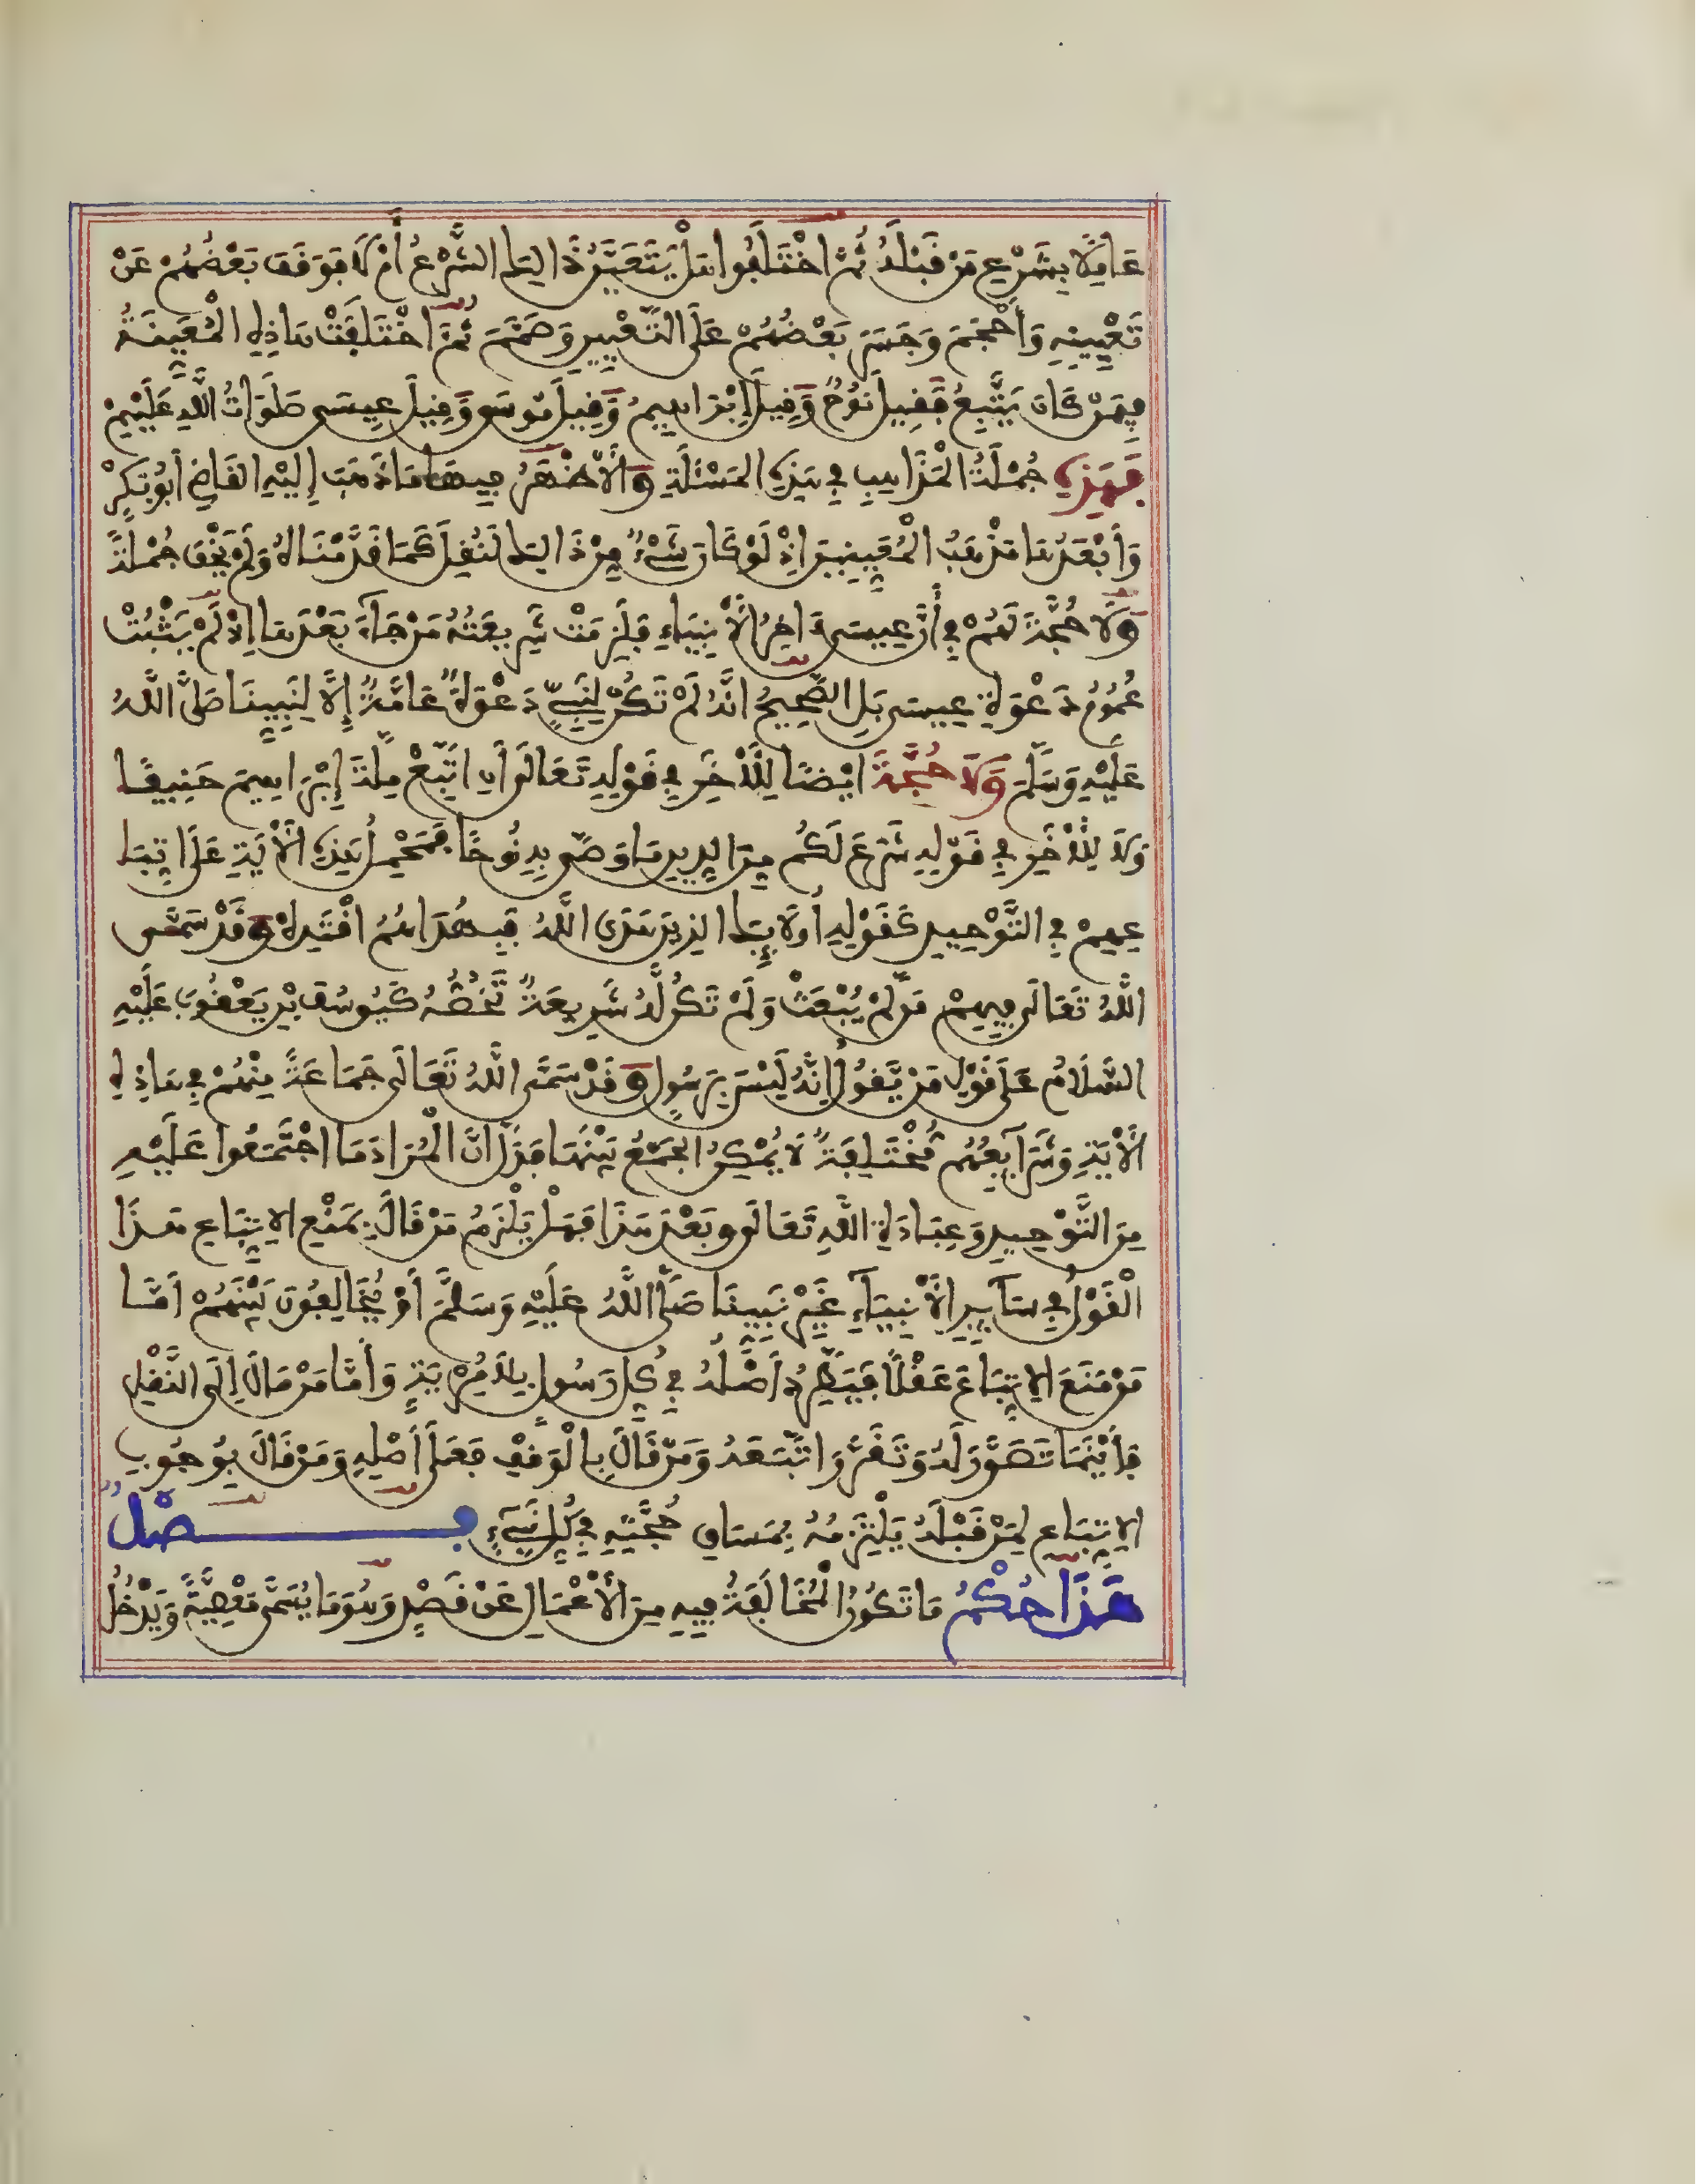 عَامِلًا بِشَرْعِ مَنْ قَبْلَهُ ثُمَّ اخْتَلَفُوا هَلْ يَتَعَيَّنُ ذَالِكَ الشَّرْعُ أَمْ لَا فَوَقَفَ بَعْضُهُمْ عَنْ
تَعْيِينِهِ وَأَحْجَمَ وَجَسَرَ بَعْضُهُمْ عَلَى التَّعْيِينِ وَصَمَّمَ ثُمَّ اخْتَلَفَتْ هَاذِهِ الْمُعَيِّنَةُ
فِيمَنْ كَانَ يَتَّبِعُ فَقِيلَ نُوحٌ وَقِيلَ إِبْرَاهِيمُ وَقِيلَ مُوسَى وَقِيلَ عِيسَى صَلَوَاتُ اللَّهِ عَلَيْهِمْ
فَهَذِهِ جُمْلَةُ الْمَذَاهِبِ فِي هَذِهِ الْمَسْئَلَةِ وَالْأَظْهَرُ فِيهَا مَا ذَهَبَ إِلَيْهِ الْقَاضِي أَبُو بَكْرٍ
وَأَبْعَدُهَا مَذْهَبُ الْمُعَيِّنِينَ إِذْ لَوْ كَانَ شَيْءٌ مِنْ ذَالِكَ لَنُقِلَ كَمَا قَدَّمْنَاهُ وَلَمْ يَخْفَ جُمْلَةً
وَلَا حُجَّةَ لَهُمْ فِي أَنَّ عِيسَى ءَاخِرُ الْأَنْبِيَاءِ فَلَزِمَتْ شَرِيعَتُهُ مَنْ جَآءَ بَعْدَهَا إِذْ لَمْ يَثْبُتْ
عُمُومُ دَعْوَةِ عِيسَى بَلِ الصَّحِيحُ أَنَّهُ لَمْ تَكُنْ لِنَبِيٍّ دَعْوَةٌ عَامَّةٌ إِلَّا لِنَبِيِّنَا صَلَّى اللَّهُ
عَلَيْهِ وَسَلَّمَ وَلَا حُجَّةَ أَيْضًا لِلْأَخَرِ فِي قَوْلِهِ تَعَالَى أَنِ اتَّبِعْ مِلَّةَ إِبْرَاهِيمَ حَنِيفًا
وَلَا لِلْأَخَرِ فِي قَوْلِهِ شَرَعَ لَكُم مِنَ الدِّينِ مَا وَصَّى بِهِ نُوحًا فَمَحْمِلُ هَذِهِ الْأَيَةِ عَلَى اتِّبَا
عِهِمْ فِي التَّوْحِيدِ كَقَوْلِهِ أُولَائِكَ الذِينَ هَدَى اللَّهُ فَبِهُدَاهُمُ اقْتَدِهْ وَقَدْ سَمَّى
اللَّهُ تَعَالَى فِيهِمْ مَنْ لَمْ يُبْعَثْ وَلَمْ تَكُنْ لَهُ شَرِيعَةٌ تَخُصُّهُ كَيُوسُفَ بْنِ يَعْقُوبَ عَلَيْهِ
السَّلَامُ عَلَى قَوْلِ مَنْ يَقُولُ إِنَّهُ لَيْسَ بِرَسُولٍ وَقَدْ سَمَّى اللَّهُ تَعَالَى جَمَاعَةً مِنْهُمْ فِي هَاذِهِ
الْأَيَةِ وَشَرَآئِعُهُمْ مُخْتَلِفَةٌ لَا يُمْكِنُ الْجَمْعُ بَيْنَهَا فَدَلَّ أَنَّ الْمُرَادَ مَا اجْتَمَعُوا عَلَيْهِ
مِنَ التَّوْحِيدِ وَعِبَادَةِ اللَّهِ تَعَالَى وَبَعْدَ هَذَا فَهَلْ يَلْزَمُ مَنْ قَالَ بِمَنْعِ الِاتِّبَاعِ هَذَا
الْقَوْلُ فِي سَآئِرِ الْأَنْبِيَآءِ غَيْرِ نَبِيِّنَا صَلَّى اللَّهُ عَلَيْهِ وَسَلَّمَ أَوْ يُخَالِفُونَ بَيْنَهُمْ أَمَّا
مَنْ مَنَعَ الِاتِّبَاعَ عَقْلًا فَيَطَّرِدُ أَصْلُهُ فِي كُلِّ رَسُولٍ بِلَا مِرْيَةٍ وَأَمَّا مَنْ مَالَ إِلَى النَّقْلِ
فَأَيْنَمَا تَصَوَّرَ لَهُ وَتَقَرَّرَ اتَّبَعَهُ وَمَنْ قَالَ بِالْوَقْفِ فَعَلَى أَصْلِهِ وَمَنْ قَالَ بِوُجُوبِ
الِاتِّبَاعِ لِمَنْ قَبْلَهُ يَلْتَزِمُهُ بِمَسَاقِ حُجَّتِهِ فِي كُلِّ نَبِيٍّ فَصْلٌ
هَذَا حُكْمُ مَا تَكُونُ الْمُخَالَفَةُ فِيهِ مِنَ الْأَعْمَالِ عَنْ قَصْدٍ وَهُوَ مَا يُسَمَّى مَعْصِيَةً وَيَدْخُلُ